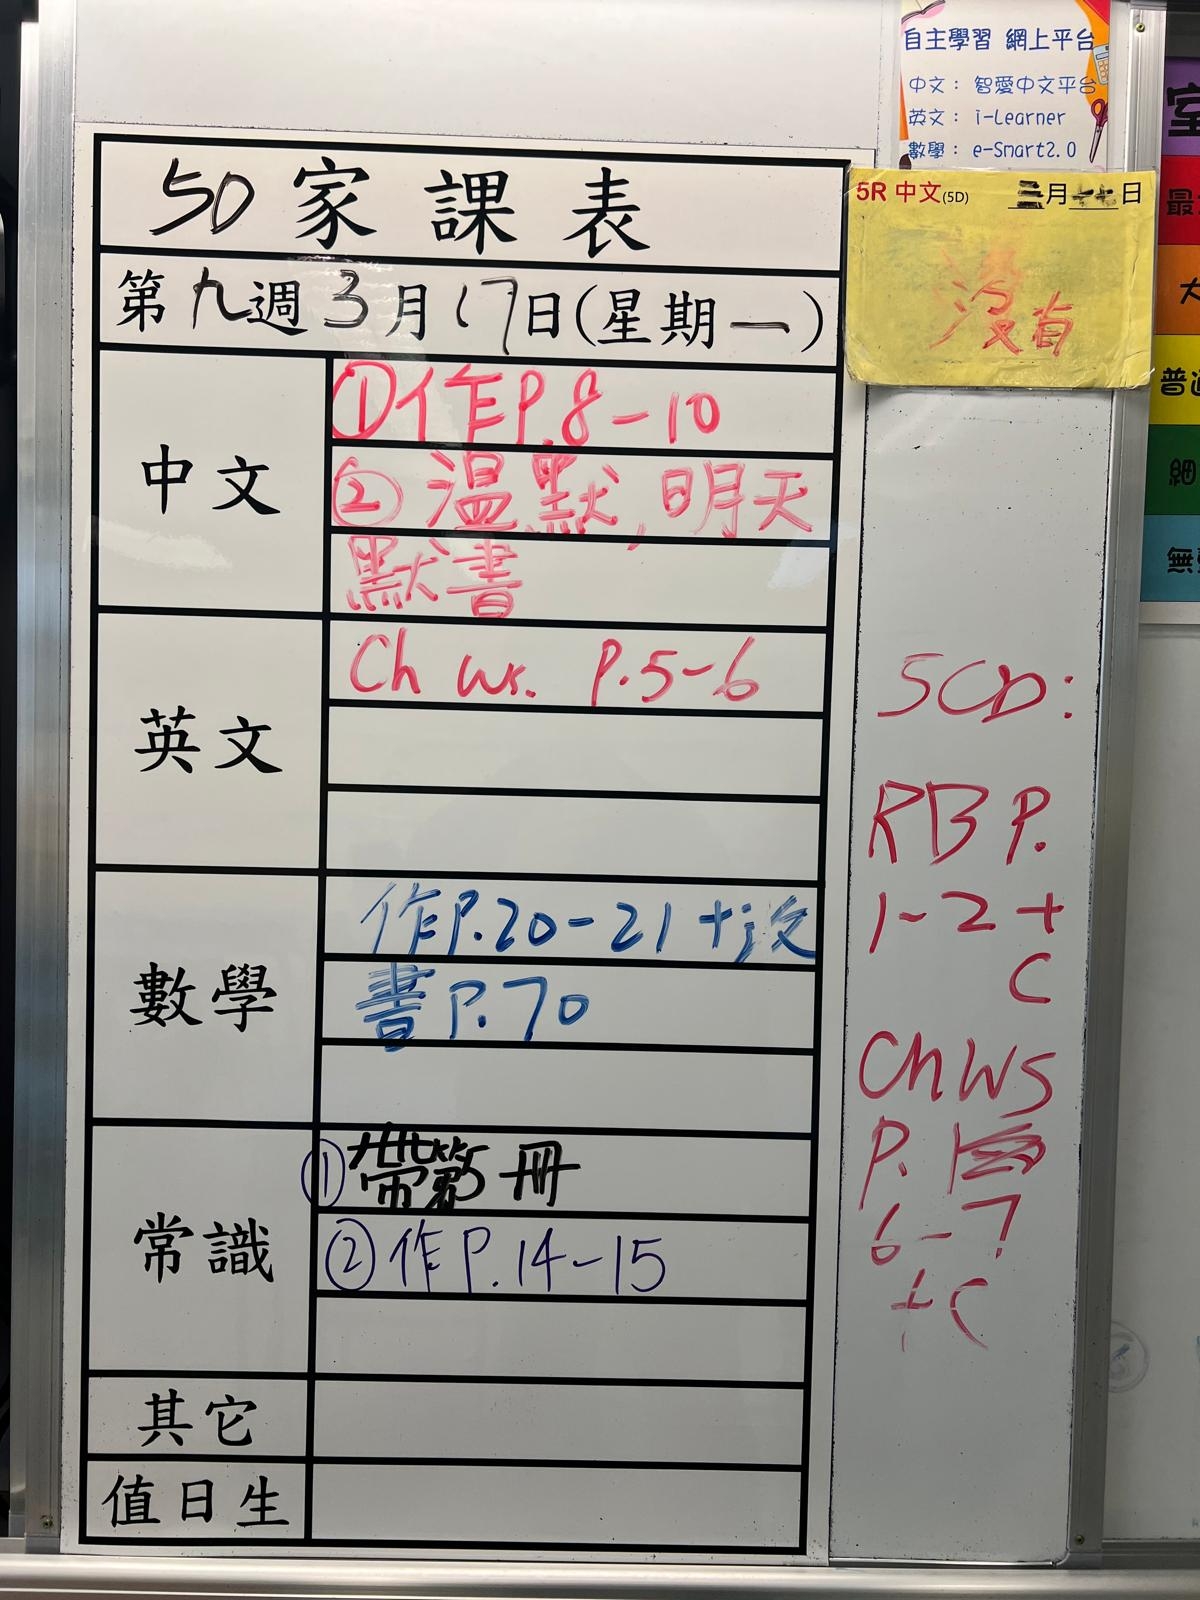 自主學習 網上平台
中文： 智愛中文平台
英文： i-Learner
數學： e-Smart2.0
5D 家課表
第九週 3月17日(星期一)
5R 中文(5D) 三月十七日
沒有
中文
①作P.8-10
②溫默,明天
默書
英文
Ch Ws. P.5-6
數學
作P.20-21+
書P.70
常識
①帶 冊
②作P.14-15
其它
值日生
5CD:
RB P.
1-2+
C
Ch WS
P.
6-7
+C
最
大
普通
細
無